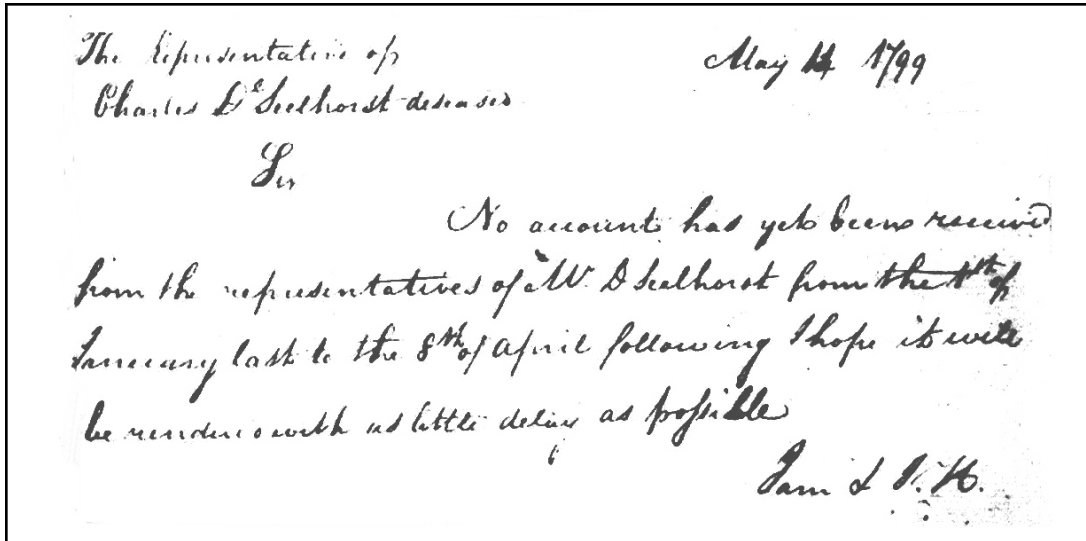 The Representative of
May 14 1799
Charles De Seelhorst deseased
Sir
No account has yet been received
from the representatives of Mr. D Seelhorst from the 1st of
January last to the 8th of April following I hope it will
be rendered with as little delay as possible
I am & J. H.